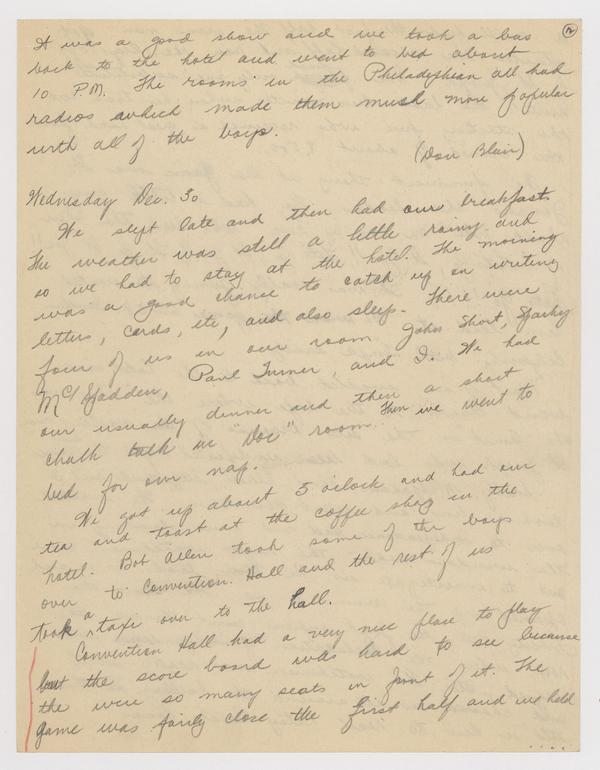 12
It was a good show and we took a bus
back to the hotel and went to bed about
10 P.M. The rooms in the Philadelphian all had
radios which made them much more popular
with all of the boys.
(Don Blair)
Wednesday Dec. 30
We slept late and then had our breakfast.
The weather was still a little rainy and
so we had to stay at the hotel. The morning
was a good chance to catch up on writing
letters, cards, etc, and also sleep. There were
four of us in our room John Short, Sparky
McSpadden, Paul Turner, and I. We had
our usually dinner and then a short
chalk talk in "Doc" room. Then we went to
bed for our nap.
We got up about 5 o'clock and had our
tea and toast at the coffee shop in the
hotel. Bob Allen took some of the boys
over to Convention Hall and the rest of us
took a taxi over to the hall.
Convention Hall had a very nice place to play
but the score board was hard to see because
the were so many seats in front of it. The
game was fairly close the first half and we held